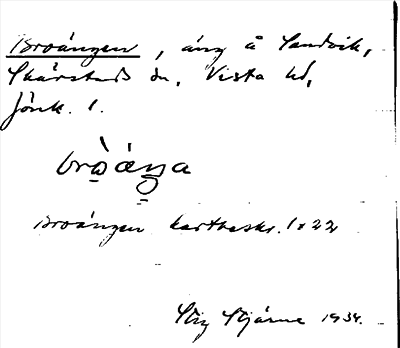 Broängen, äng å Sandvik,
Skärstads sn, Vista hd,
Jönk. l.
bro̱äŋa
Broängen kartbeskr. 1822
Stig Stjärne 1934.